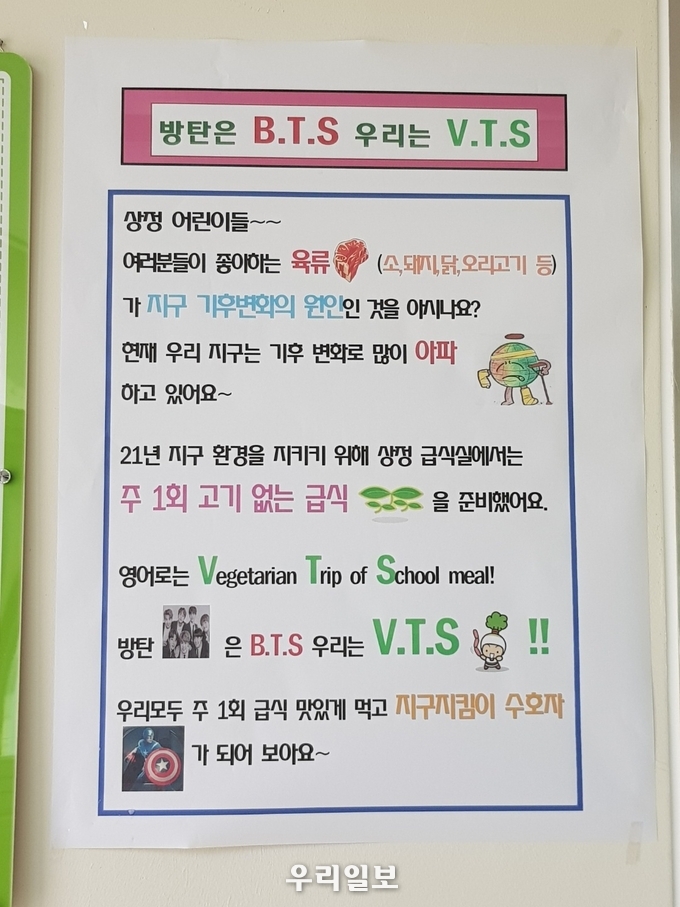 방탄은 B.T.S 우리는 V.T.S
상정 어린이들~~
여러분들이 좋아하는 육류 (소,돼지,닭,오리고기 등)
가 지구 기후변화의 원인인 것을 아시나요?
현재 우리 지구는 기후 변화로 많이 아파
하고 있어요~
21년 지구 환경을 지키키 위해 상정 급식실에서는
주 1회 고기 없는 급식 을 준비했어요.
영어로는 Vegetarian Trip of School meal!
방탄 은 B.T.S 우리는 V.T.S !!
우리모두 주 1회 급식 맛있게 먹고 지구지킴이 수호자
가 되어 보아요~
우리일보